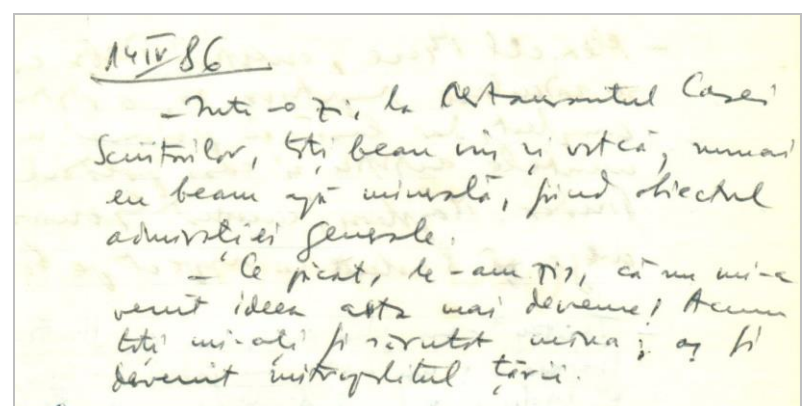 14 IV 86
- Într-o zi, la Restaurantul Casei
Scriitorilor, toți beau vin și votcă, numai
eu beam apă minerală, fiind obiectul
admirației generale.
- Ce păcat, le-am zis, că nu mi-a
venit ideea asta mai devreme! Acum
toți mi-ați fi sărutat mîna; aș fi
devenit mitropolitul țării.